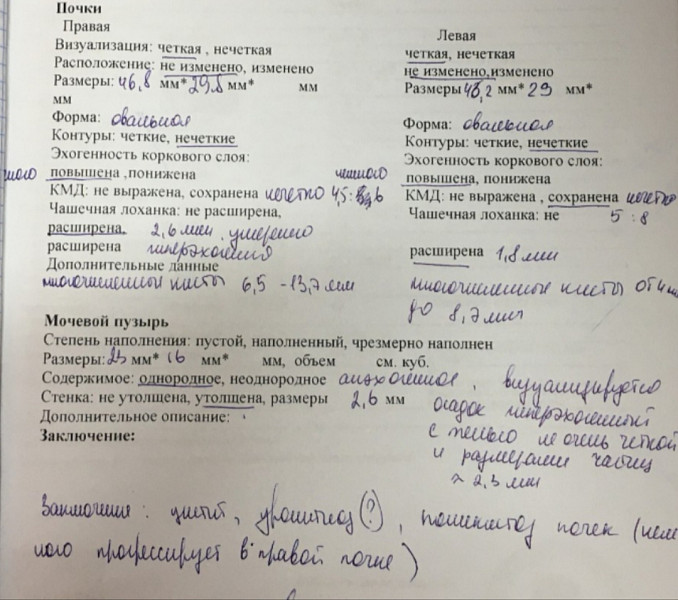 Почки
Правая
Визуализация: четкая , нечеткая
Расположение: не изменено, изменено
Размеры: 46,8 мм* 29,8 мм* мм
мм
Форма: овальная
Контуры: четкие, нечеткие
Эхогенность коркового слоя:
повышена ,понижена
КМД: не выражена, сохранена нечетко 4,5:
Чашечная лоханка: не расширена,
расширена. 2,6 мм умеренно
расширена гиперэхогенна
Дополнительные данные
многочисленные кисты 6,5 - 13,7 мм
Левая
четкая, нечеткая
не изменено,изменено
Размеры 48,2 мм* 29 мм*
Форма: овальная
Контуры: четкие, нечеткие
Эхогенность коркового слоя:
немного повышена, понижена
КМД: не выражена , сохранена нечетко
Чашечная лоханка: не 5 : 8
расширена 1,8 мм
многочисленные кисты от 4 мм
до 8,7 мм
Мочевой пузырь
Степень наполнения: пустой, наполненный, чрезмерно наполнен
Размеры: 25 мм* 16 мм* мм, объем см. куб.
Содержимое: однородное, неоднородное анэхогенное , визуализируется
Стенка: не утолщена, утолщена, размеры 2,6 мм осадок гиперэхогенный
Дополнительное описание: с тенью не очень четкой
Заключение: и размерами частиц
≈ 2,3 мм
Заключение: цистит, уролитиаз (?), поликистоз почек (нем
ного прогрессирует в правой почке)